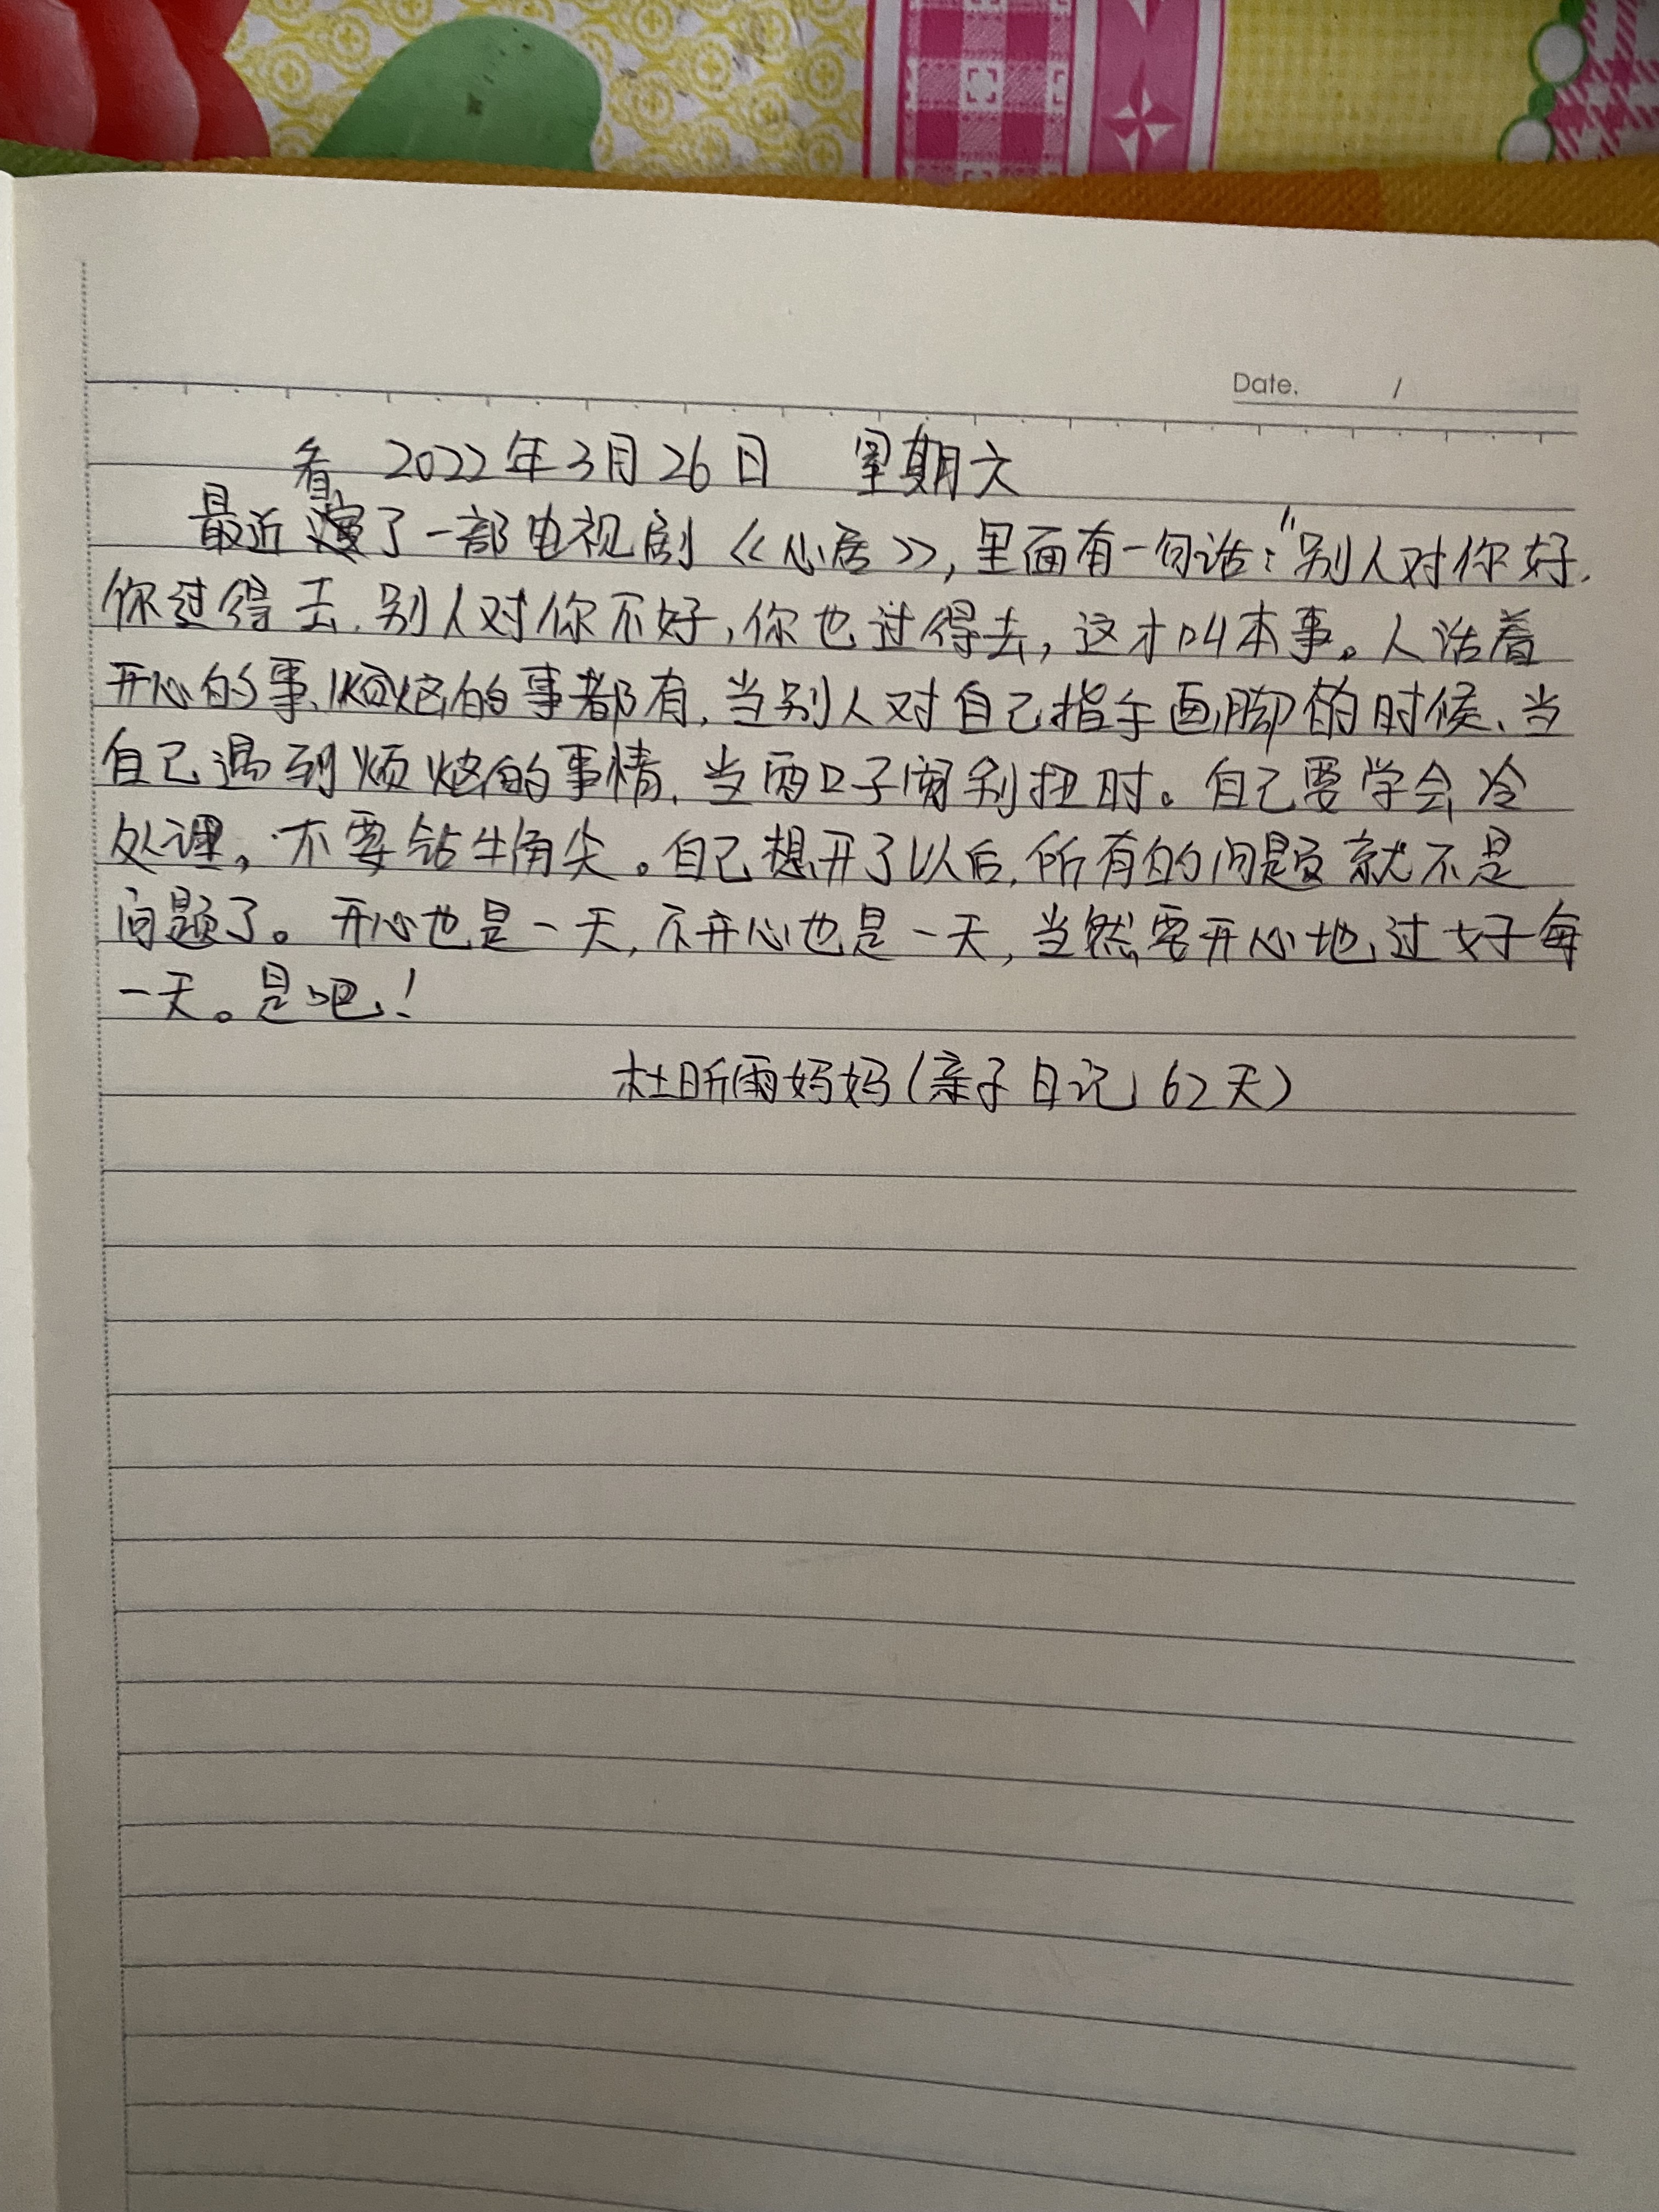 Date. /
2022年3月26日 星期六
最近看了一部电视剧《心居》,里面有一句话:"别人对你好,
你过得去,别人对你不好,你也过得去,这才叫本事。人活着
开心的事、烦恼的事都有,当别人对自己指手画脚的时候、当
自己遇到烦恼的事情,当两口子闹别扭时。自己要学会冷
处理,不要钻牛角尖。自己想开了以后,所有的问题就不是
问题了。开心也是一天,不开心也是一天,当然要开心地过好每
一天。是吧!
杜昕雨妈妈(亲子日记62天)